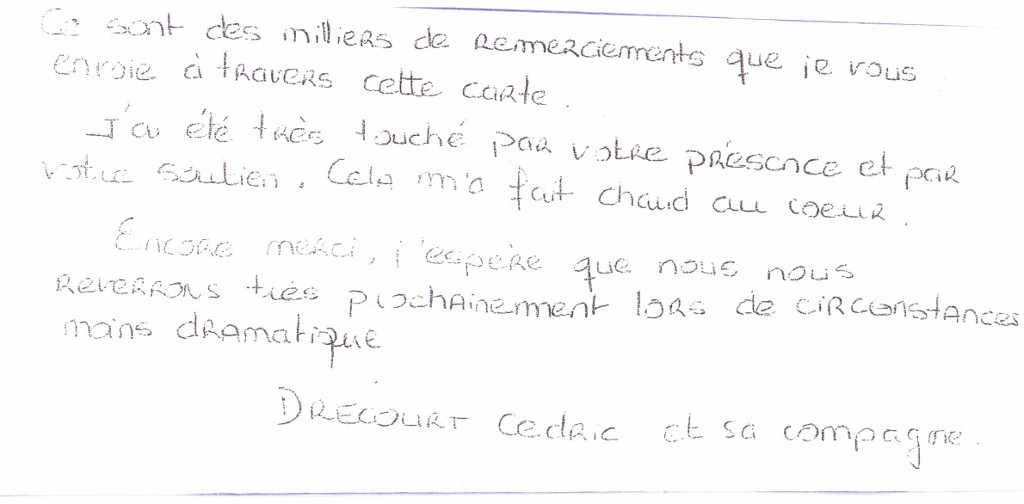 Ce sont des milliers de remerciements que je vous
envoie à travers cette carte.
J'ai été très touché par votre présence et par
votre soutien. Cela m'a fait chaud au coeur.
Encore merci, j'espère que nous nous
reverrons très prochainement lors de circonstances
moins dramatique
DRECOURT Cedric et sa compagne.